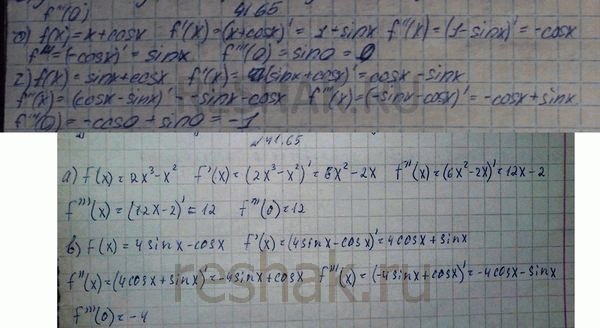 f'''(0) 41.65
б) f(x)=x+cosx f'(x)=(x+cosx)'=1+sinx f''(x)=(1-sinx)'=-cosx
f'''=(-cosx)'=sinx f'''(0)=sin0=0
г) f(x)=sinx+cosx f'(x)=(sinx+cosx)'=cosx-sinx
f''(x)=(cosx-sinx)'=-sinx-cosx f'''(x)=(-sinx-cosx)'=-cosx+sinx
f'''(0)=-cos0+sin0=-1
№41.65
а) f(x)=2x³-x² f'(x)=(2x³-x²)'=6x²-2x f''(x)=(6x²-2x)'=12x-2
f'''(x)=(12x-2)'=12 f'''(0)=12
в) f(x)=4sinx-cosx f'(x)=(4sinx-cosx)'=4cosx+sinx
f''(x)=(4cosx+sinx)'=-4sinx+cosx f'''(x)=(-4sinx+cosx)'=-4cosx-sinx
reshak.ru
f'''(0)=-4